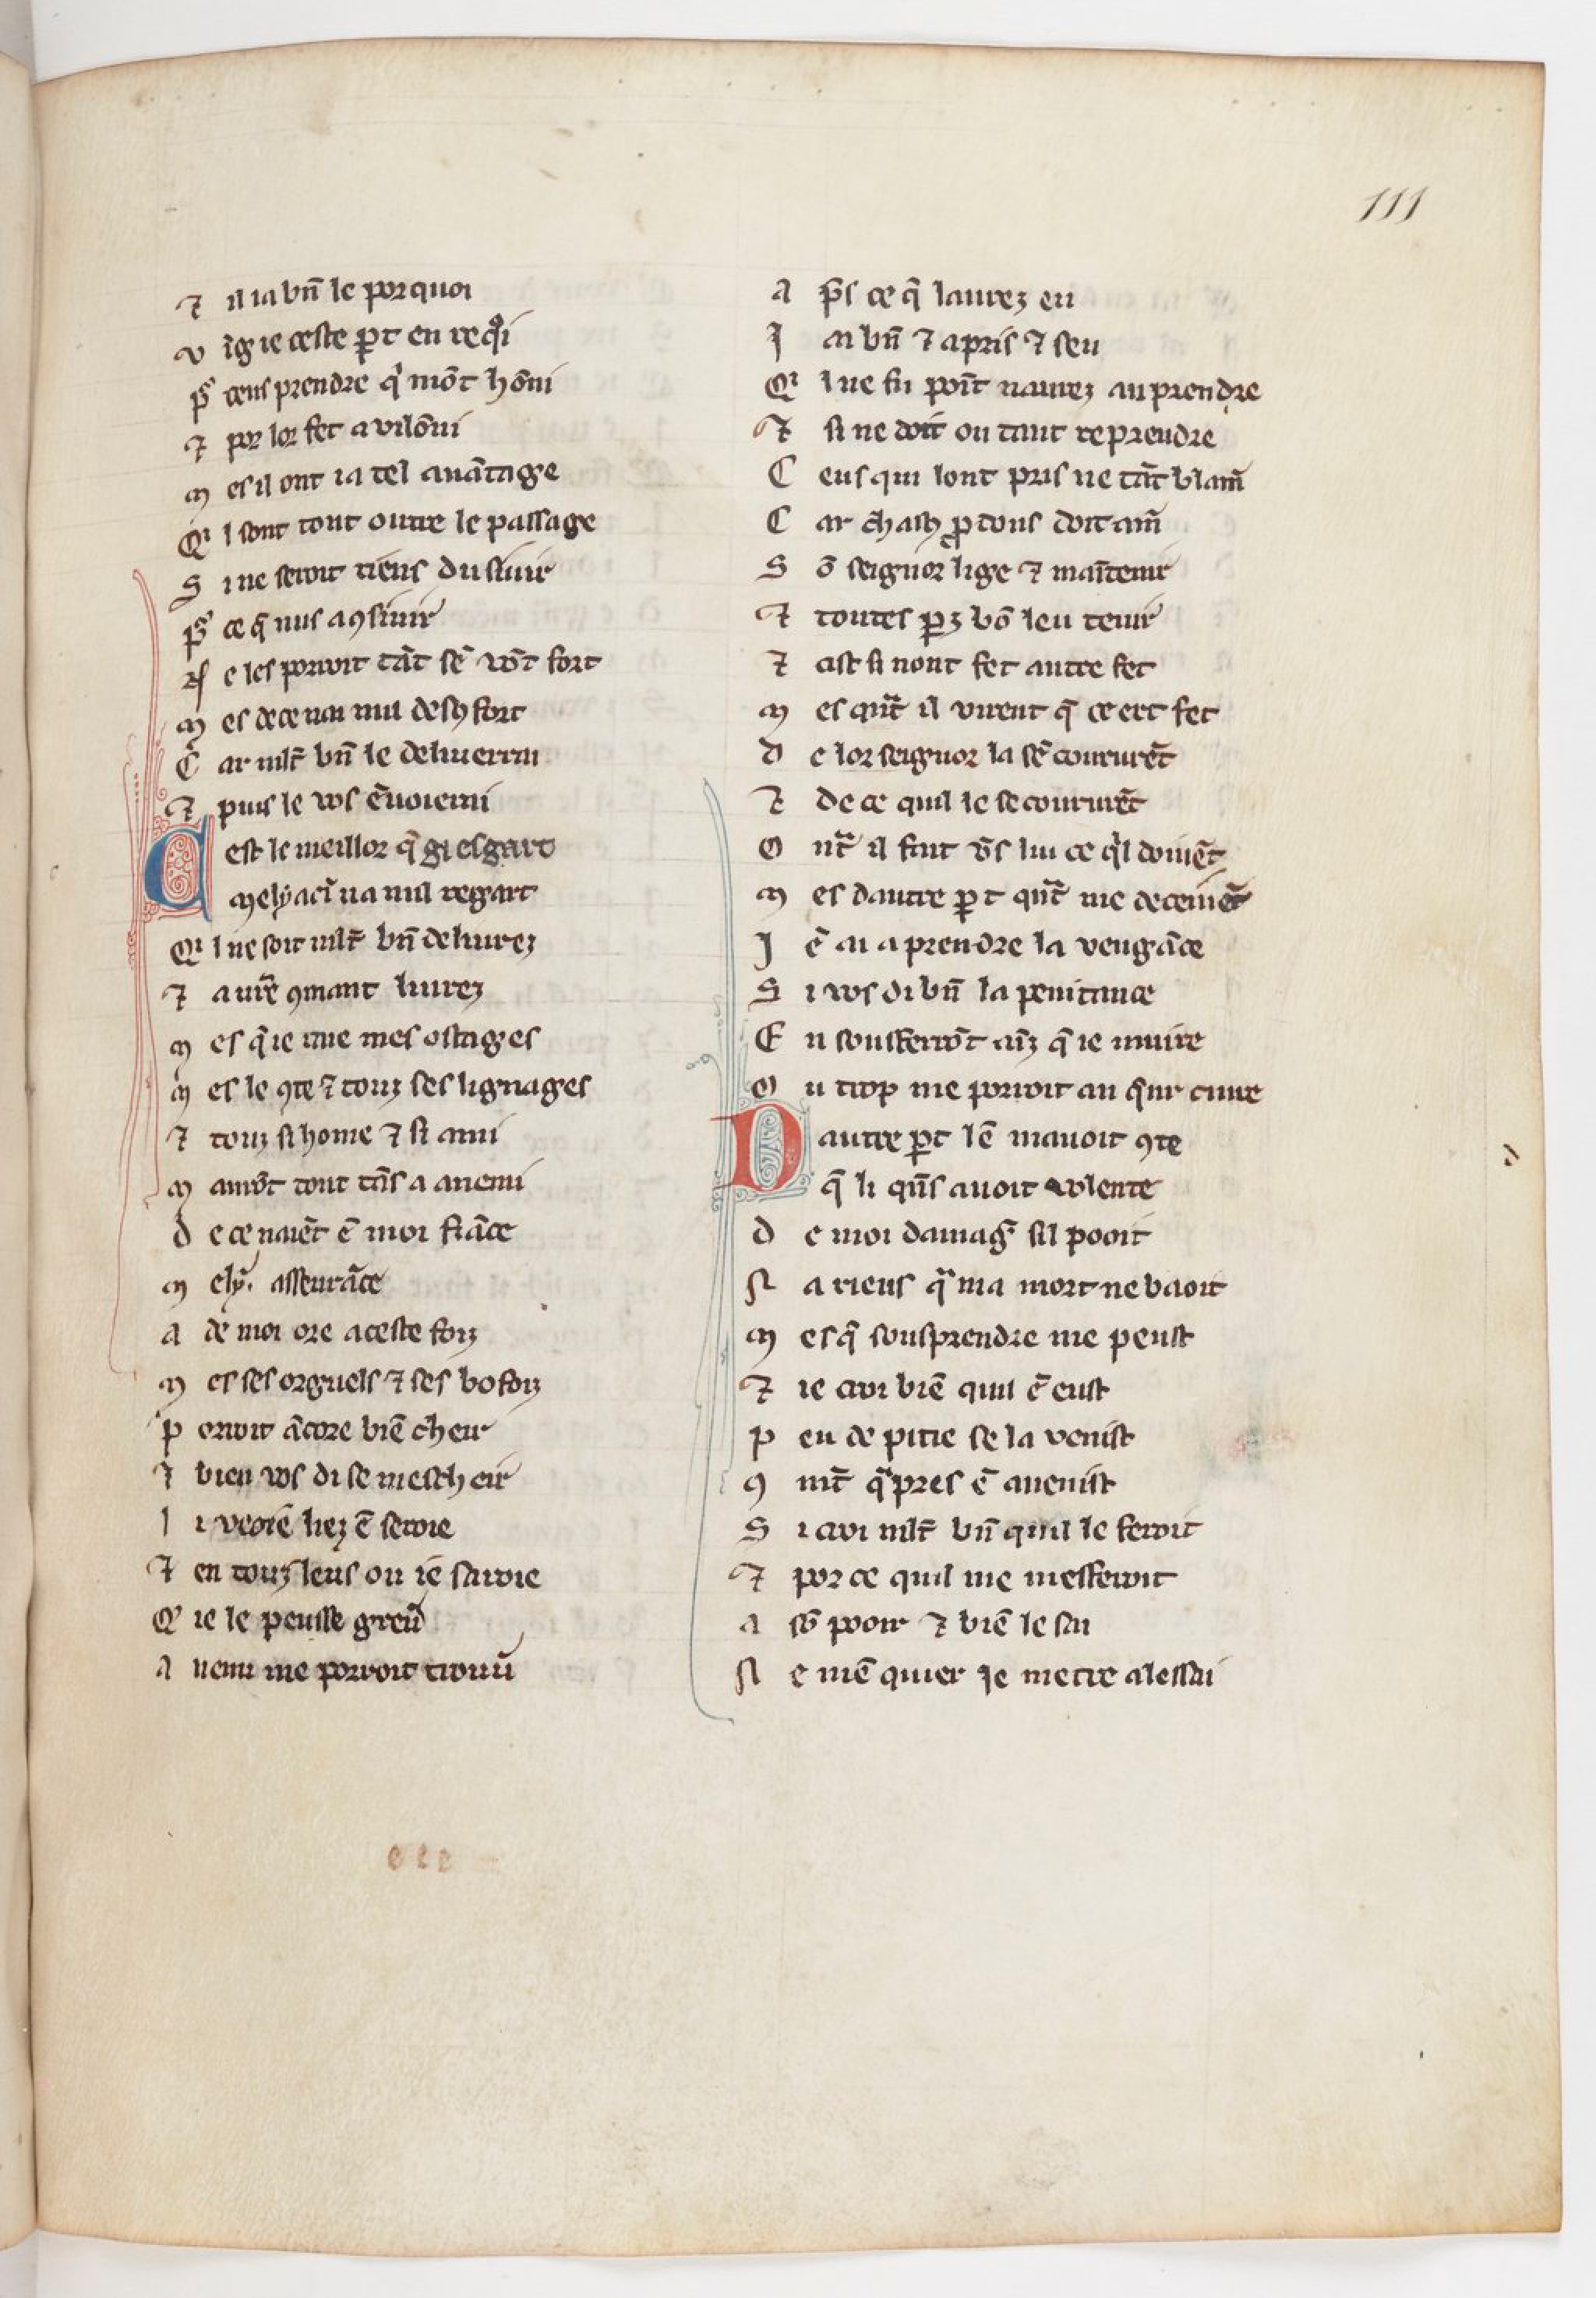 111
⁊ il ia bñ le por quoi
v ĩg ie ceste ꝑt en req̊i
p̾ ceus prendre qͥ mõt hõni
⁊ por lor fet a vilõni
m es il ont ia tel auãtage
Qͥ l sont tout outre le passage
S i ne seroit riens du siuir
p̾ ce q̃ nus a ꝯsiuir
N e les porroit tãt sẽ võt fort
m es de ce nai nul desꝯfort
C ar mlt̃ bñ le deliuerrai
⁊ puis le vos ẽuoierai
C est le meillor q̃ gi esgart
melyacĩ na nul regart
Qͥ l ne soit mlt̃ bñ deliurez
⁊ a ur̃e ꝯmant liurez
m es q̃ ie aue mes ostages
m es le ꝯte ⁊ touz ses lignages
⁊ touz si home ⁊ si ami
m aurõt tout tãs a anemi
d e ce naiẽt ẽ moi fiãce
m ely. asseurãce
a de moi ore a ceste foiz
m es ses orguels ⁊ ses bofoiz
p orroit ãcore biẽ cheir
⁊ bien vos di se mescheir
l i veoiẽ liez ẽ seroie
⁊ en touz leus ou ie sauroie
Qͤ ie le peusse greũ
a nemi me porroit trouũ
a p̃s ce q̃ laurez eu
J ai bñ ⁊ apris ⁊ seu
Qͥ l ne fu point naurez au prendre
⁊ si ne doit on tant reprendre
C eus qui lont pris ne tãt blam̃
C ar chasꝯ ꝓ tous doit am̃
S õ seignor lige ⁊ maĩtenir
⁊ toutes ꝑz bõ leu tenir
⁊ cist si nont fet autre fet
m es qñt il virent q̃ ce ert fet
d e lor seignor la sẽ coururẽt
⁊ de ce quil le secoururẽt
O nt̃ il fait ṽs lui ce qͥl doiuẽt
m es dautre ꝑt qñt me deceiuẽt
J ẽ ai a prendre la vengãce
S i vos di bñ la penitance
E n soufferrõt aĩz q̃ ie muire
O u trop me porroit au q̃ur cuire
D autre ꝑt lẽ mauoit ꝯte
q̃ li qñs auoit volente
d e moi damag̃ sil pooit
N a riens qͣ ma mort ne baoit
m es q̃ sousprendre me peust
⁊ ie croi biẽ quil ẽ eust
p eu de pitie se la venist
ꝯ mt̃ qͣpres ẽ auenist
S i croi mlt̃ bñ quil le feroit
⁊ por ce quil me mefferoit
a sõ pooir ⁊ biẽ le sai
N e mẽ quier ie metre a lessai